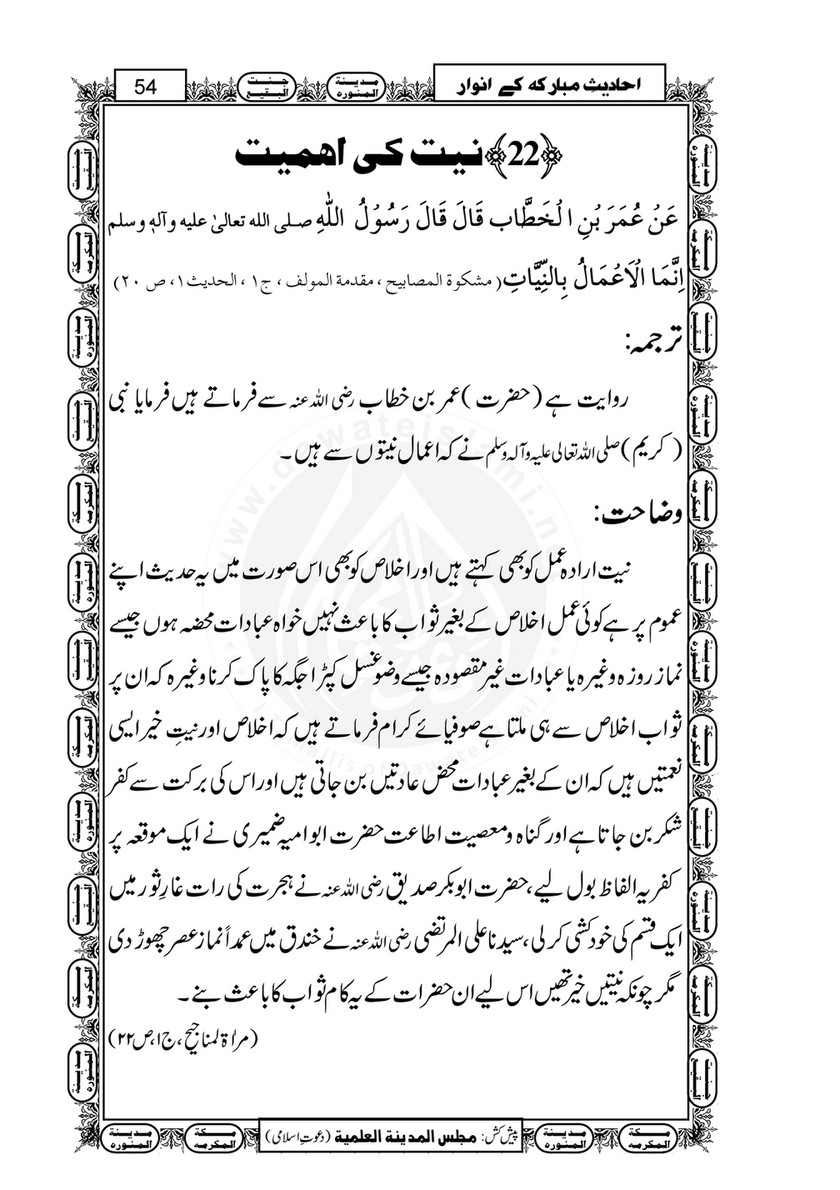 احادیث مبارکہ کے انوار
54
﴿22﴾ نیت کی اھمیت
عَنْ عُمَرَ بْنِ الْخَطَّاب قَالَ قَالَ رَسُوْلُ اللّٰهِ صلی الله تعالیٰ علیه وآله وسلم
اِنَّمَا الْاَعْمَالُ بِالنِّیَّاتِ (مشکوة المصابیح ، مقدمة المولف ، ج۱ ، الحدیث۱، ص ۲۰)
ترجمہ:
روایت ہے (حضرت) عمر بن خطاب رضی اللہ عنہ سے فرماتے ہیں فرمایا نبی
(کریم) صلی اللہ تعالیٰ علیہ وآلہ وسلم نے کہ اعمال نیتوں سے ہیں۔
وضاحت:
نیت ارادہ عمل کو بھی کہتے ہیں اور اخلاص کو بھی اس صورت میں یہ حدیث اپنے
عموم پر ہے کوئی عمل اخلاص کے بغیر ثواب کا باعث نہیں خواہ عبادات محضہ ہوں جیسے
نماز روزہ وغیرہ یا عبادات غیر مقصودہ جیسے وضو غسل کپڑا جگہ کا پاک کرنا وغیرہ کہ ان پر
ثواب اخلاص سے ہی ملتا ہے صوفیائے کرام فرماتے ہیں کہ اخلاص اور نیتِ خیر ایسی
نعمتیں ہیں کہ ان کے بغیر عبادات محض عادتیں بن جاتی ہیں اور اس کی برکت سے کفر
شکر بن جاتا ہے اور گناہ و معصیت اطاعت حضرت ابو امیہ ضمیری نے ایک موقعہ پر
کفریہ الفاظ بول لیے، حضرت ابوبکر صدیق رضی اللہ عنہ نے ہجرت کی رات غارِ ثور میں
ایک قسم کی خودکشی کر لی، سیدنا علی المرتضی رضی اللہ عنہ نے خندق میں عمداً نماز عصر چھوڑ دی
مگر چونکہ نیتیں خیر تھیں اس لیے ان حضرات کے یہ کام ثواب کا باعث بنے۔
(مراۃ لمناجیح، ج۱، ص۲۲)
پیش کش: مجلس المدینة العلمیة (دعوتِ اسلامی)